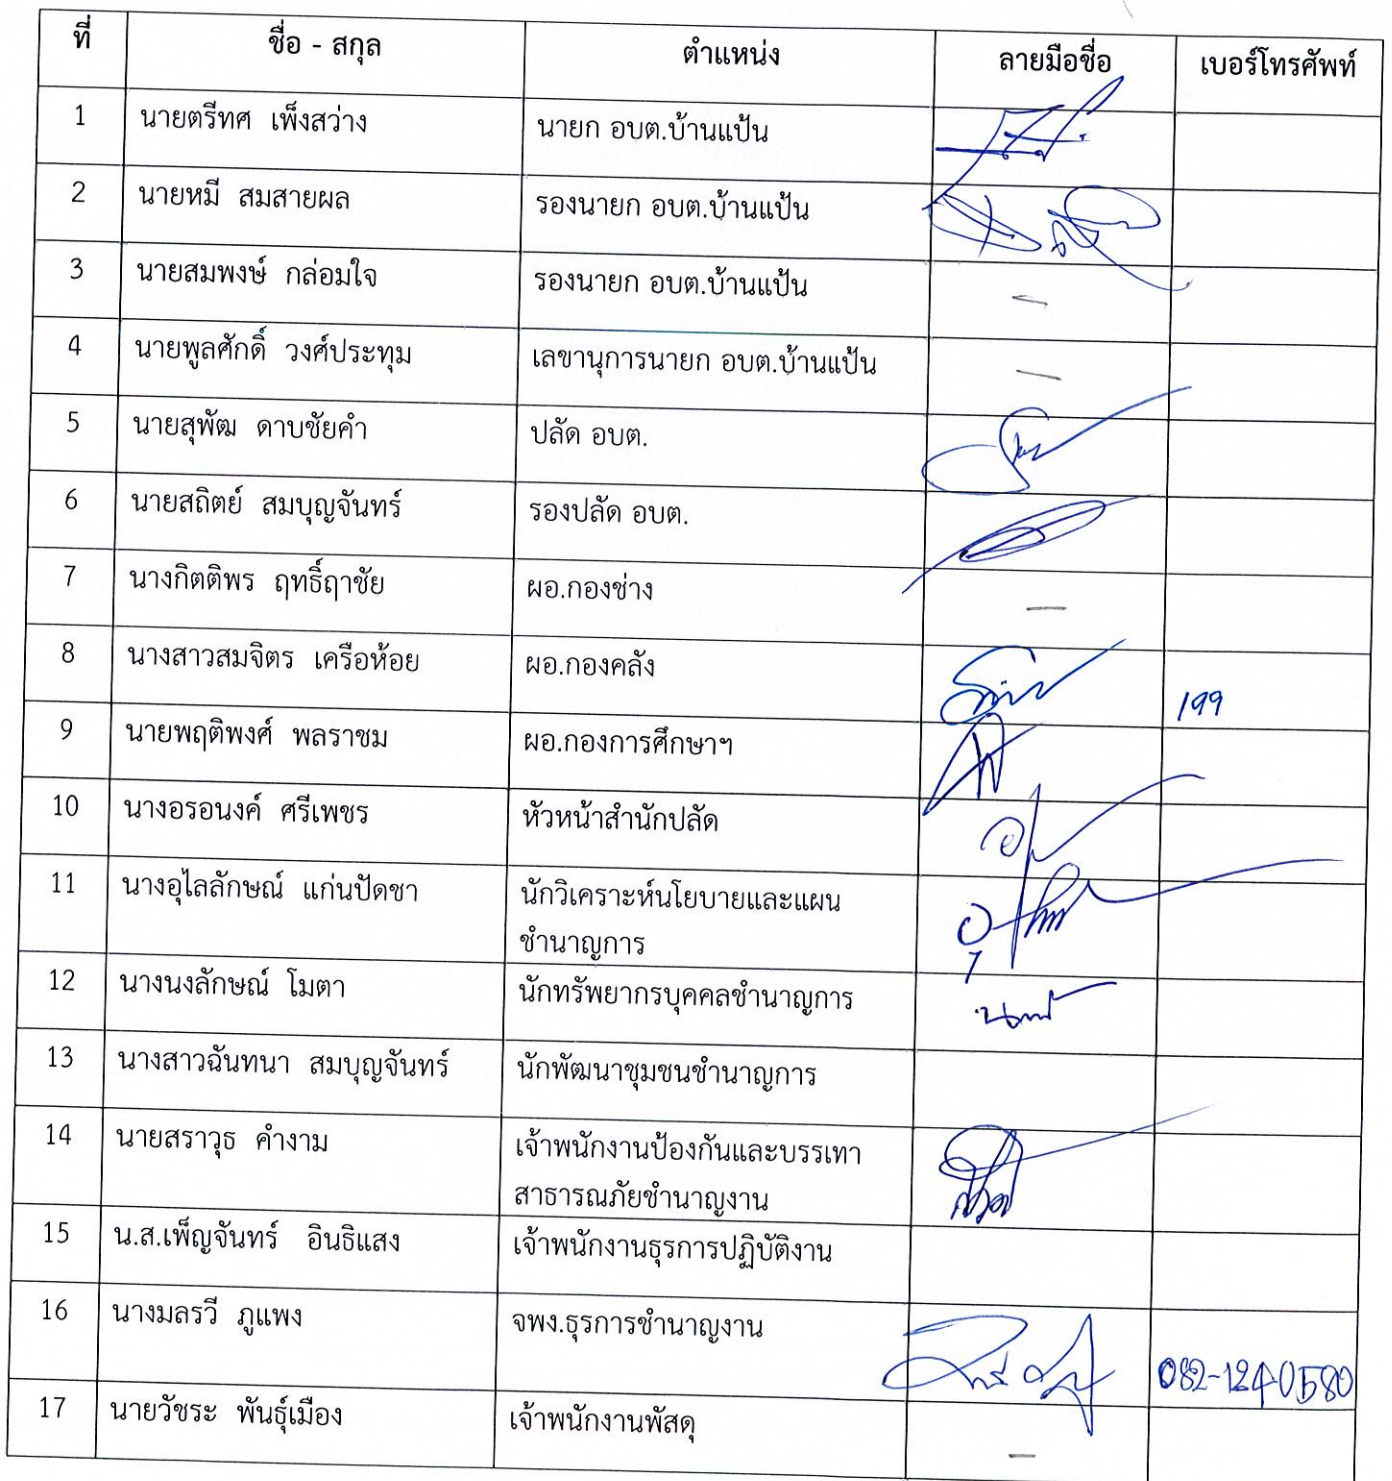 ที่ ชื่อ - สกุล ตำแหน่ง ลายมือชื่อ เบอร์โทรศัพท์
1 นายตรีทศ เพ็งสว่าง นายก อบต.บ้านแป้น
2 นายหมี สมสายผล รองนายก อบต.บ้านแป้น
3 นายสมพงษ์ กล่อมใจ รองนายก อบต.บ้านแป้น —
4 นายพูลศักดิ์ วงศ์ประทุม เลขานุการนายก อบต.บ้านแป้น —
5 นายสุพัฒ ดาบชัยคำ ปลัด อบต.
6 นายสถิตย์ สมบุญจันทร์ รองปลัด อบต.
7 นางกิตติพร ฤทธิ์ฤาชัย ผอ.กองช่าง —
8 นางสาวสมจิตร เครือห้อย ผอ.กองคลัง 199
9 นายพฤติพงศ์ พลราชม ผอ.กองการศึกษาฯ
10 นางอรอนงค์ ศรีเพชร หัวหน้าสำนักปลัด
11 นางอุไลลักษณ์ แก่นปัดชา นักวิเคราะห์นโยบายและแผน
ชำนาญการ
12 นางนงลักษณ์ โมตา นักทรัพยากรบุคคลชำนาญการ
13 นางสาวฉันทนา สมบุญจันทร์ นักพัฒนาชุมชนชำนาญการ
14 นายสราวุธ คำงาม เจ้าพนักงานป้องกันและบรรเทา
สาธารณภัยชำนาญงาน
15 น.ส.เพ็ญจันทร์ อินธิแสง เจ้าพนักงานธุรการปฏิบัติงาน
16 นางมลรวี ภูแพง จพง.ธุรการชำนาญงาน 082-124-0580
17 นายวัชระ พันธุ์เมือง เจ้าพนักงานพัสดุ —